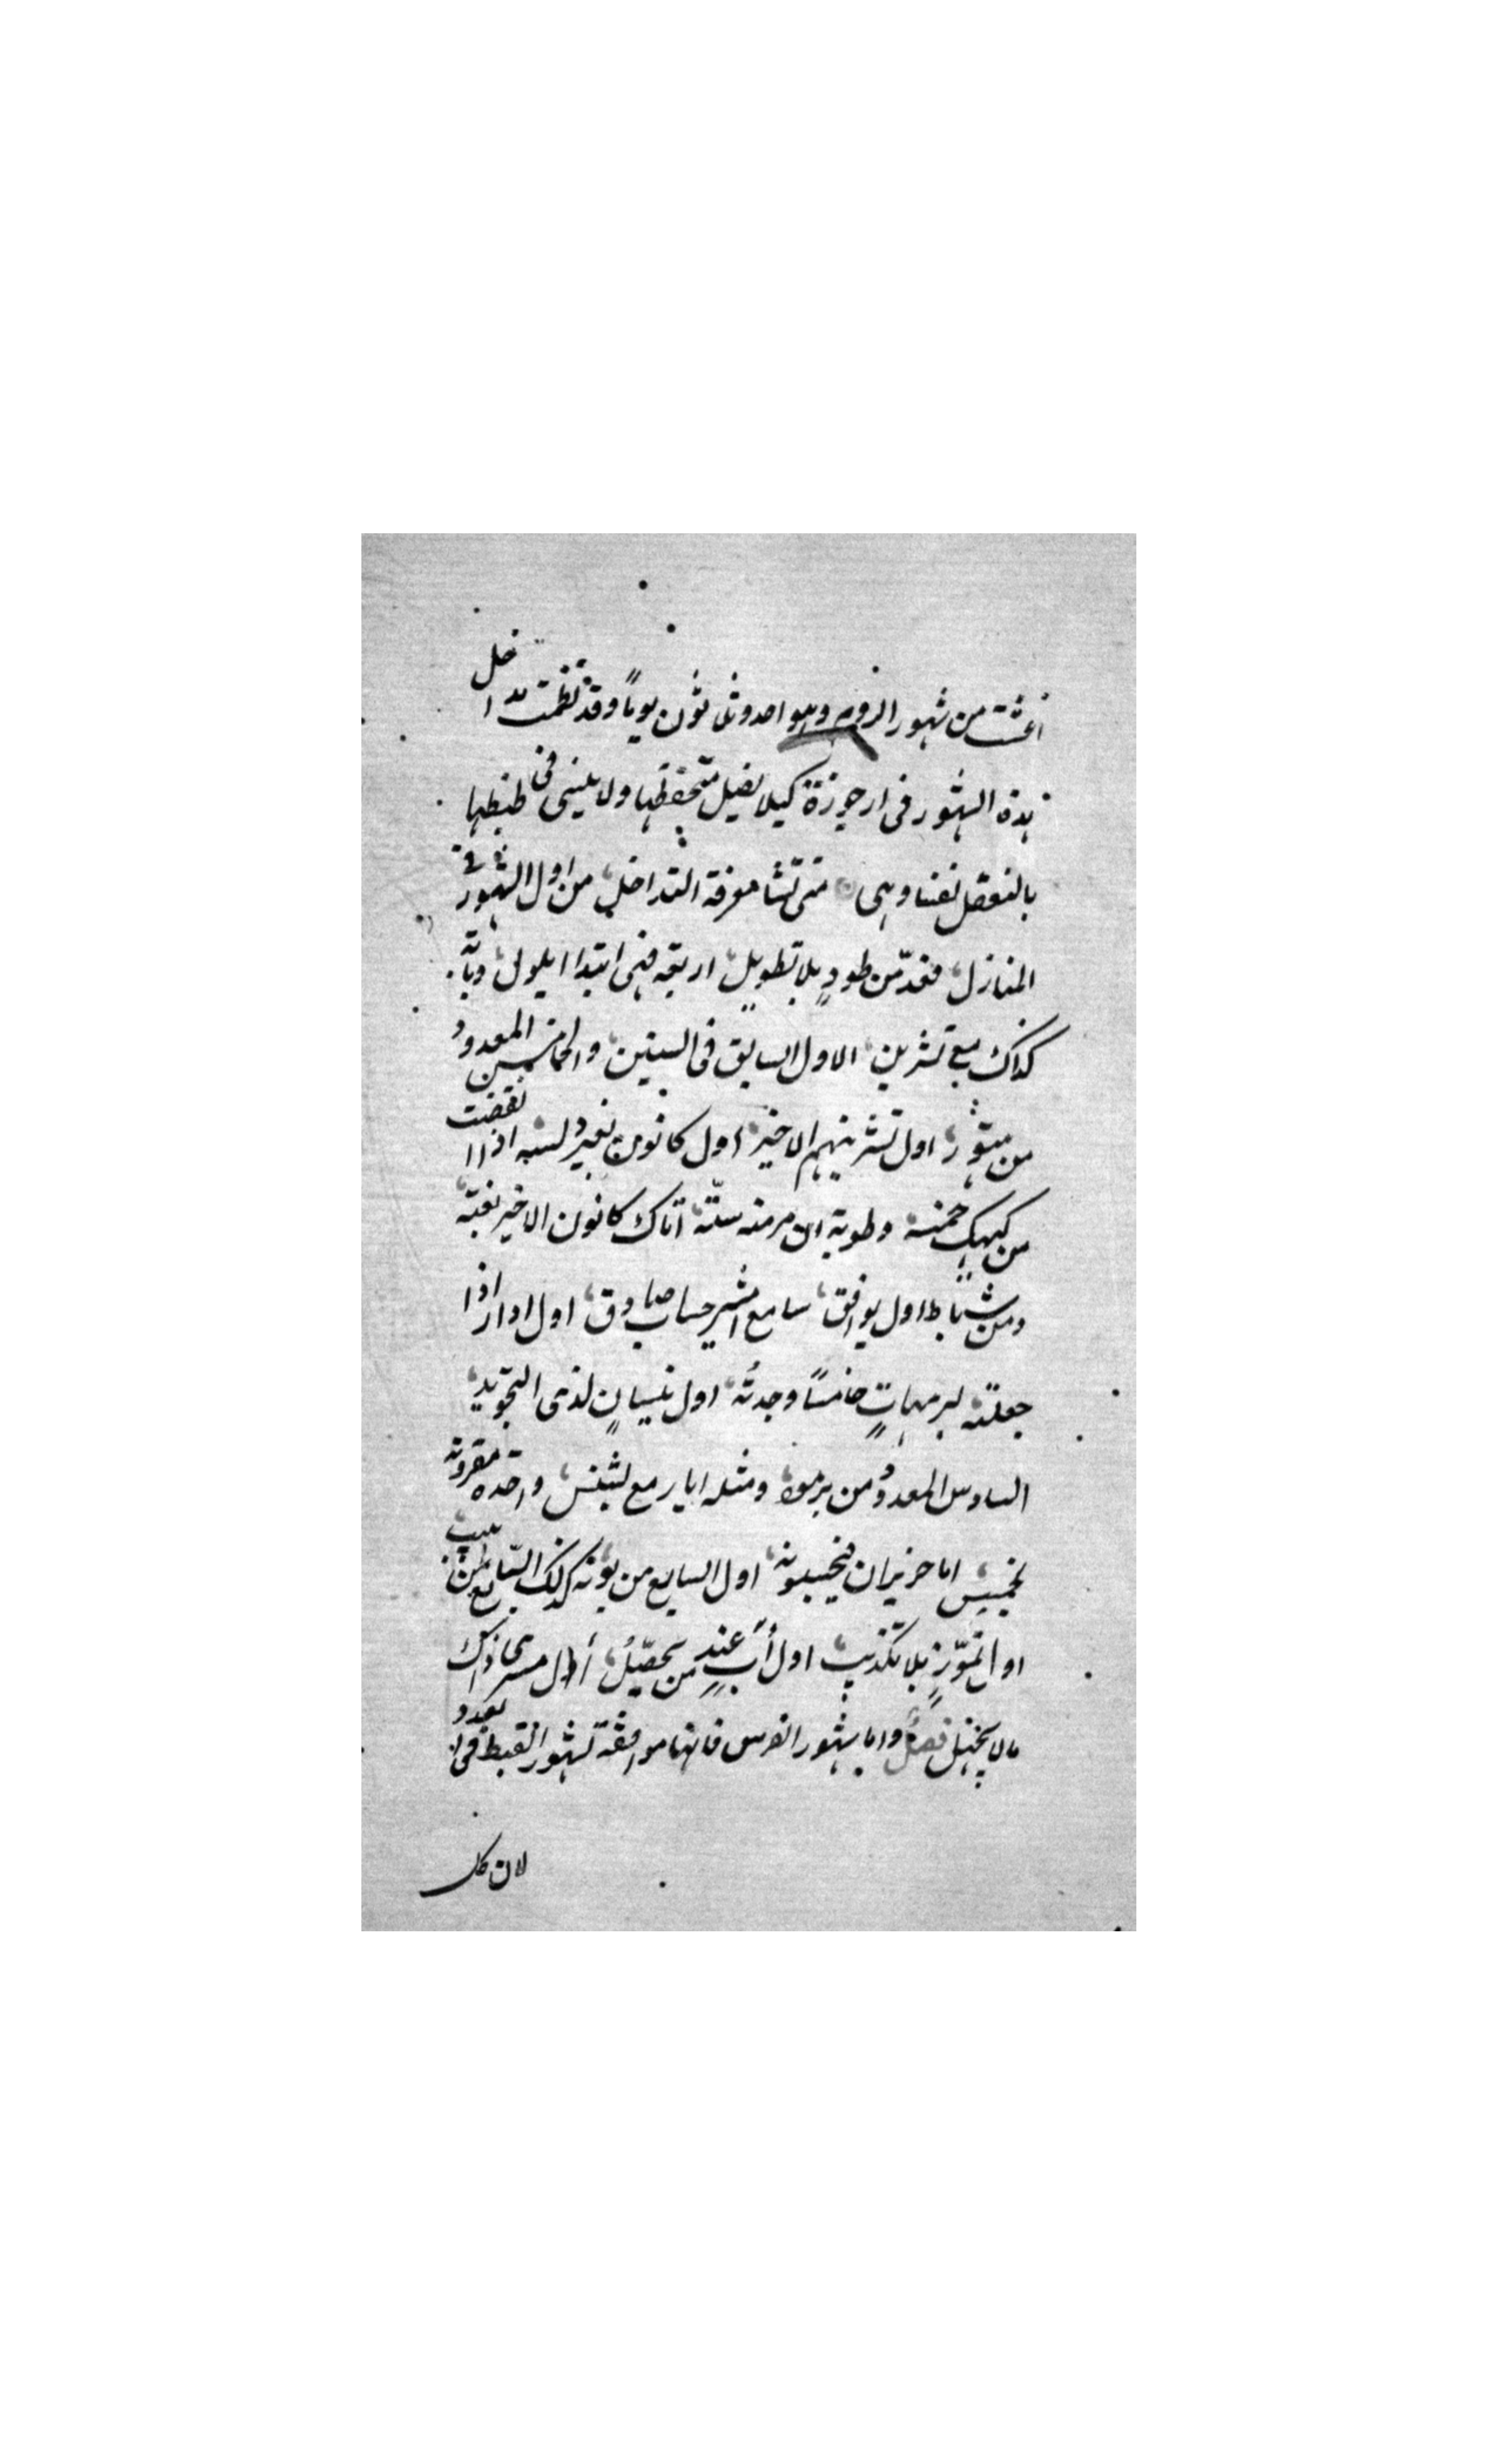 اغشت من شهور الروم وهو احد وثلاثون يوما وقد نظمت تداخل
هذه الشهور فى ارجوزة كيلا يضل متحفظها ولا ينسى فى ضبطها
بالتعقل نفسا وهى متى تشا معرفة التداخل من اول الشهور فى
المنازل فعد من طوت بلا تطويل اربعة فهى ابتدا ايلول وبابه
كذاك مع تشرين الاول السابق فى السنين والخامس المعدود
من هتور اول تشرينهم الاخير اول كانون بغير لسه اذا انقضت
من كيهك خمسه وطوبة ان مر منه ستة اتاك كانون الاخير بغتة
ومن شباط اول يوافق سابع امشير حساب صادق اول ادار اذا
جعلته لبرمهات خامسا وجدته اول نيسان لذى التجويد
السادس المعدود من برموده ومثله ايار مع بشنس واحده مقرونة
بخمس اما حزيران فيحسبونه اول السابع من بونه كذلك السابع من ابيب
اول تموز بلا تكذيب اول آب عند من يحصل أول مسرى ذاك
مالا يختل فصل واما شهور الفرس فانها موافقة لشهور القبط فى العدد
لان كل